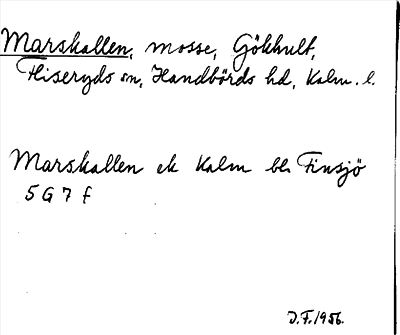 Marskallen, mosse, Gökhult,
Fliseryds sn, Handbörds hd, Kalm. l.
Marskallen ek Kalm bl. Finsjö
5 G 7 f
J.F. 1956.